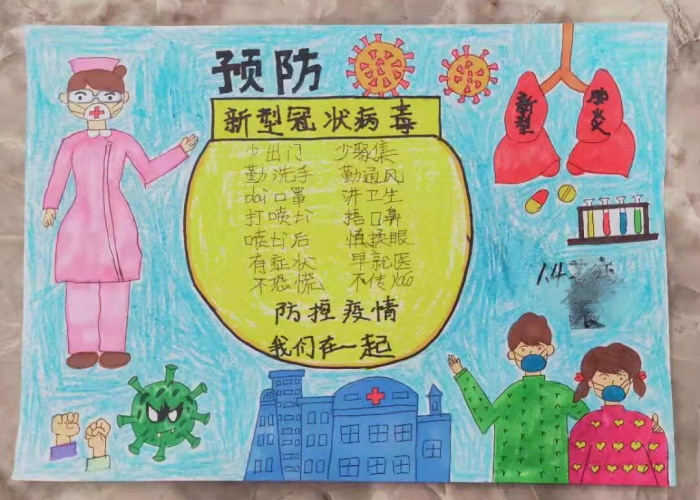 预防
新型冠状病毒
少出门 少聚集
勤洗手 勤通风
dài口罩 讲卫生
打喷tì 捂口鼻
喷tì后 慎揉眼
有症状 早就医
不恐慌 不传yáo
防控疫情
我们在一起
新型 肺炎
1.4